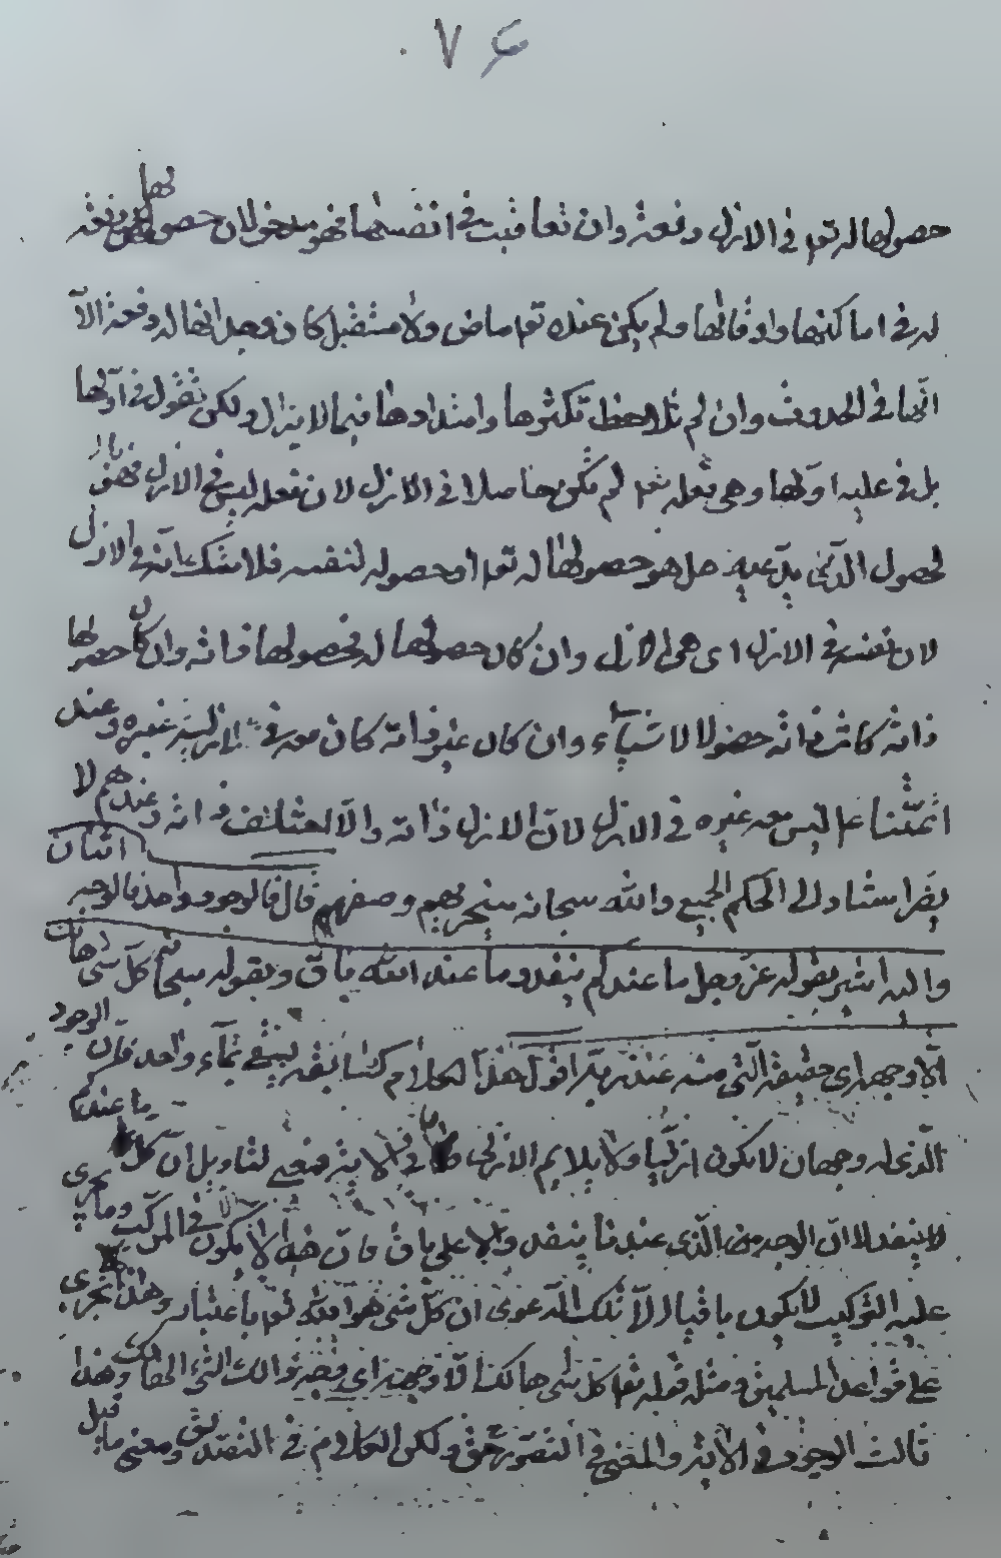 ٠٧٤
حصولها له تعم في الازل دفعة وان تعاقبت في انفسها فهو مدخول لان حصولها دفعة
له في اماكنها واوقاتها ولم يكن عنده تعم ماض ولا مستقبل كان وجدانها له دفعة الا
انها في الحدوث وان لم تلاحظ تكثرها وامتدادها فيما لا يزال ولكن نقول في اولها
بل في علية اولها وهي فعله تعم لم تكن حاصلا في الازل لان فعله ليس في الازل فهذا
الحصول الذي يدعيه هل هو حصولها له تعم او حصوله لنفسه فلا شك انه في الازل
لان نفسه في الازل اي هي الازل وان كان حصولها له فحصولها ذاته وان كان حصولها
ذاته كانت ذاته حصولا للاشياء وان كان غير ذاته كان معه في الازل غيره وعند
ائمتنا ع ليس معه غيره في الازل لان الازل ذاته والا لاختلفت ذاته وعندهم لا
اثنان
يضر استنادا الى الحكم الجميع والله سبحانه سيجزيهم وصفهم قال فالوجود واحد فالوجه
واليه اشير بقوله عز وجل ما عندكم ينفد وما عند الله باق وبقوله سبحانه كل شئ هالك
الا وجهه اي حقيقة التي منه عند ربه اقول هذا الكلام يسقى بماء واحد فان الوجود
الذي له وجهان لا يكون ازليا ولا يلايم الازلي في الاية ما عندكم
لا ينفد لا ان الوجه من الذي عندنا ينفد والاعلى باق فان هذا لا يكون الا في المركب وما يجري
عليه التركيب لا يكون باقيا الا تلك الدعوى ان كل شئ هو الله تعم باعتبار وهذا يجري
على قواعد المسلمين ومثله قوله تعم كل شئ هالك الا وجهه اي وجه ذلك الشئ الهالك وهذا
ثالث الوجوه في الاية والمعنى في التقدير حق ولكن الكلام في ومعنى ما قبل